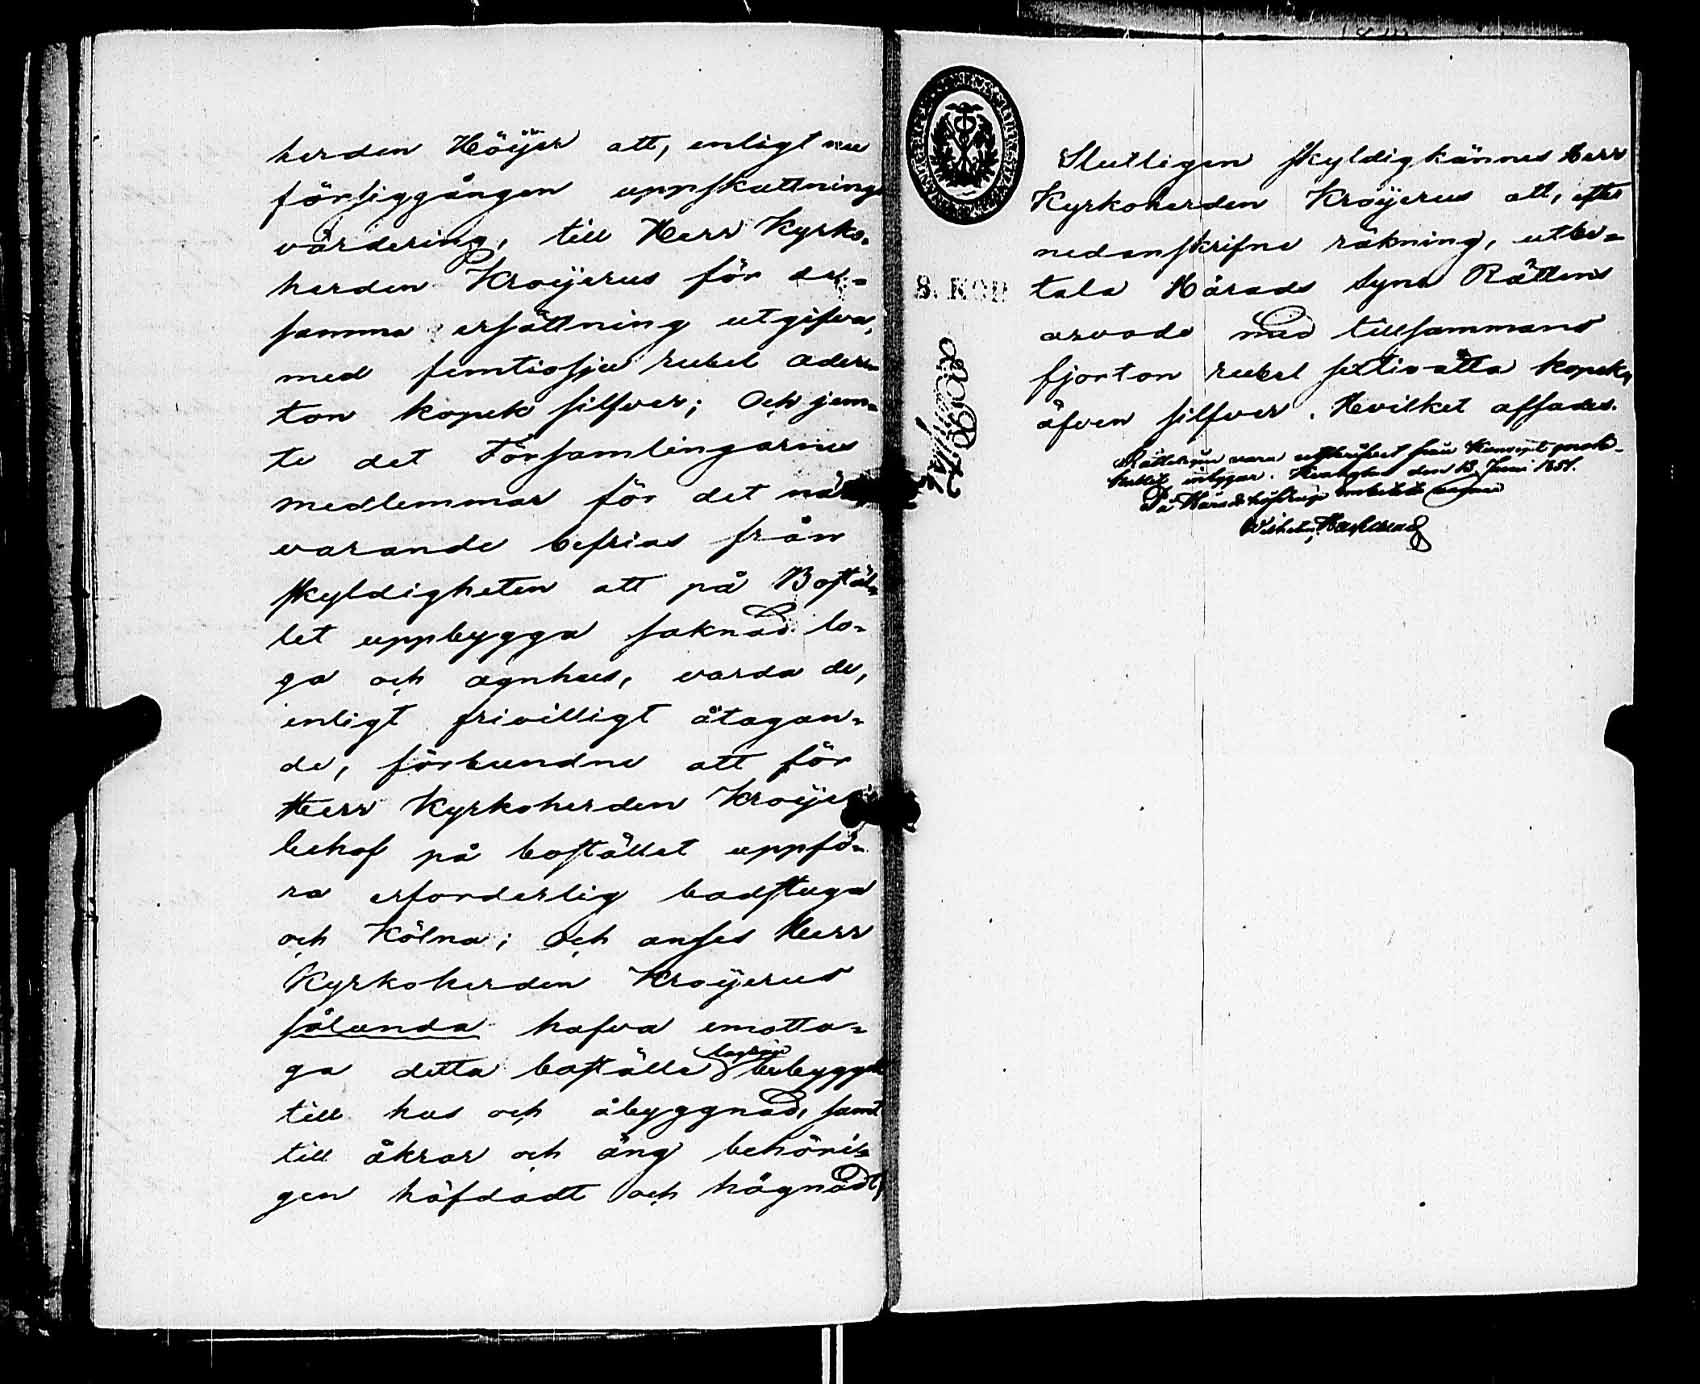 herden Höijer att, enligt nu
försiggången uppskattnings
värdering, till Herr Kyrko-
herden Kroijerus för den-
samma ersättning utgifva,
med femtiosju rubel ader-
ton kopek silfver; Och jem-
te det Församlingarnes
medlemmar för det när
varande befrias från
skyldigheten att på Bostäl-
let uppbygga saknad lo-
ga och agnhus, varda de,
enligt frivilligt åtagan-
de, förbundne att för
Herr Kyrkoherden Kroijeri
behof på bostället uppfö-
ra erforderlig badstuga
och Kölna; Och anses Herr
Kyrkoherden Kroijerus
sålunda hafva emotta-
ga detta boställe laglige bebyggdt
till hus och åbyggnad, samt
till åkrar och äng behöri-
gen häfdadt och hägnadt,
S. KOP
Slutligen skyldigkännes Herr
Kyrkoherden Kroijerus att, efter
nedanskrifne räkning, utbe-
tala Härads Syne Rättens
arvode med tillsammans
fjorton rubel sextio-åtta kopek,
äfven silfver. Hvilket afsades.
Rätteligen vara utskrifvet från Koncept proto-
kollet intygar. den 13 Juni 1851.
På Häradshöfdinge embetets vägnar
Wilhelm